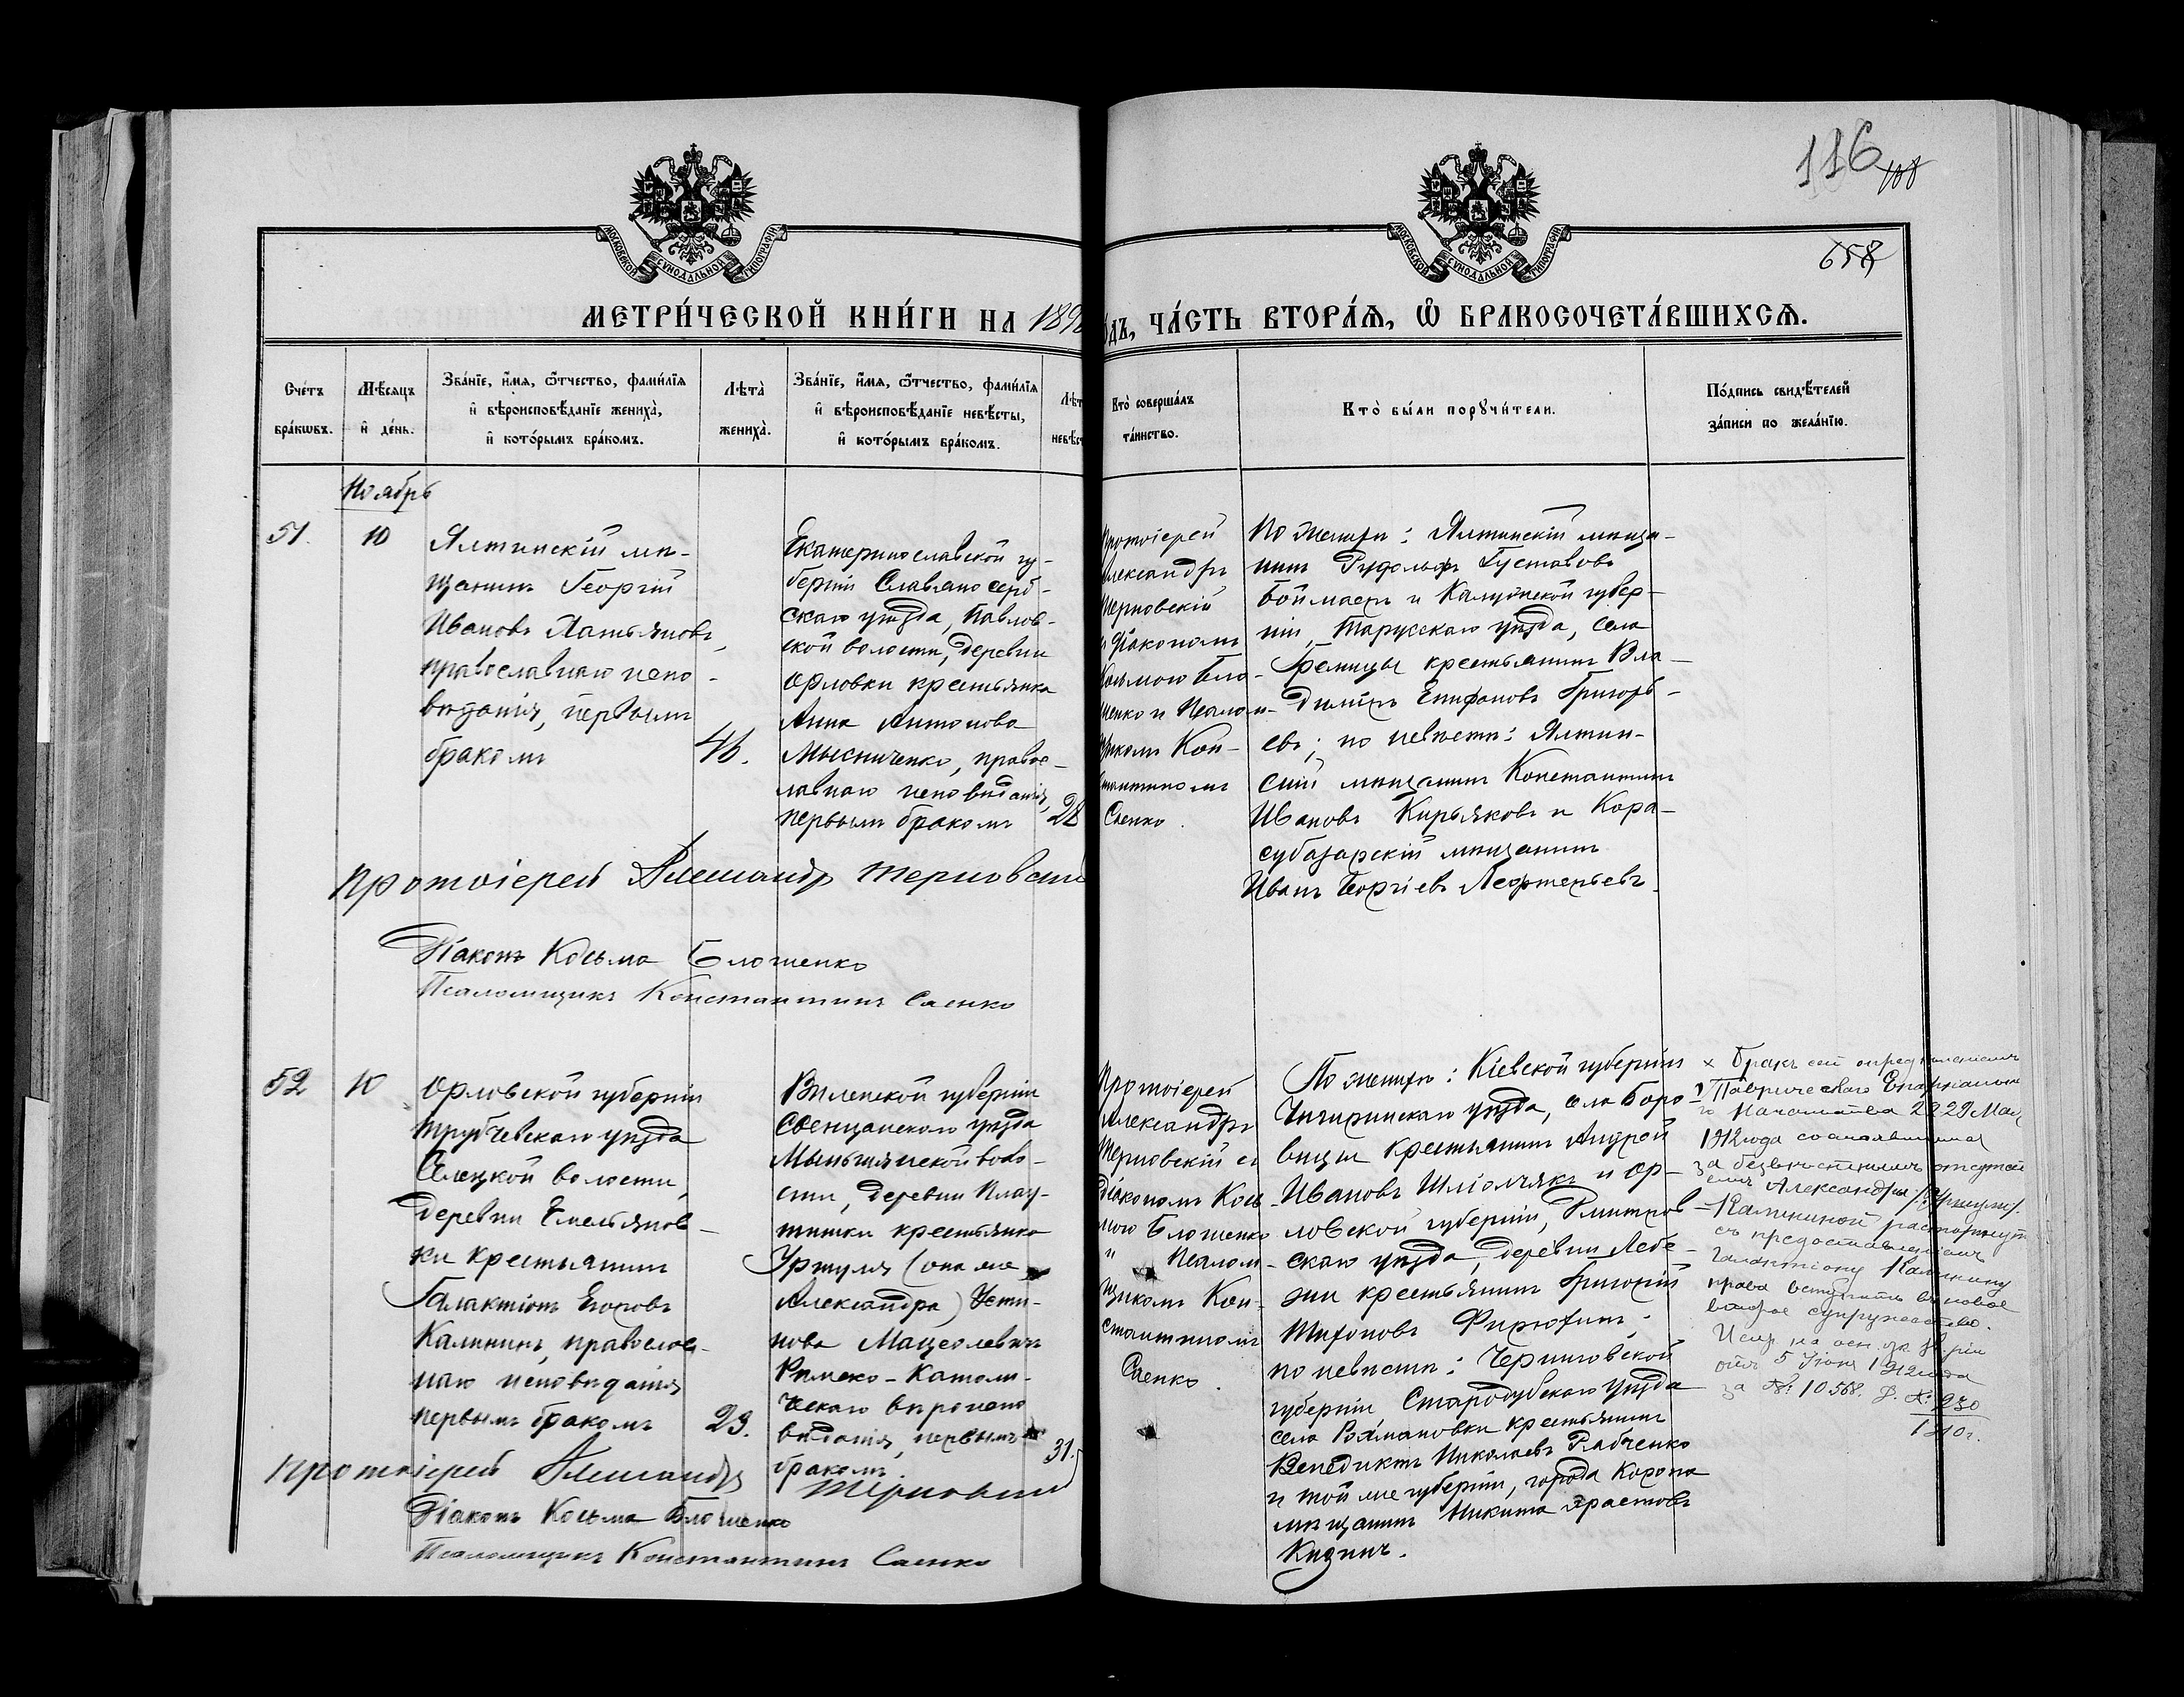 116 108
658
МОСКОВСКОЙ СѴНОДАЛЬНОЙ ТИПОГРАФІИ
МОСКОВСКОЙ СѴНОДАЛЬНОЙ ТИПОГРАФІИ
МЕТРИ́ЧЕСКОЙ КНИ́ГИ НА 189
ДЪ, ЧА́СТЬ ВТОРА́Ѧ, Ѽ БРАКОСОЧЕТА́ВШИХСѦ.
Сче́тъ бра́кѡвъ.
Мѣ́сяцъ и҆ де́нь.
Зва́нїе, и҆́мѧ, ѻ҆́тчество, фами́лїѧ и҆ вѣроисповѣ́данїе жениха̀, и҆ кото́рымъ бра́комъ.
Лѣта̀ жениха̀.
Зва́нїе, и҆́мѧ, ѻ҆́тчество, фами́лїѧ и҆ вѣроисповѣ́данїе невѣ́сты, и҆ кото́рымъ бра́комъ.
Лѣт невѣс
Кто̀ соверша́лъ та́инство.
Кто̀ бы́ли порꙋчи́тели.
По́дпись свидѣ́телей за́писи по жела́нїю.
Ноябрь
51.
10
Ялтинскій мѣ-
щанинъ Георгій
Ивановъ Яатьяновъ,
православнаго испо-
вѣданія, первымъ
бракомъ
46.
Екатеринославской гу-
берніи Славяносерб-
скаго уѣзда, Павлов-
ской волости, деревни
Орловки крестьянка
Анна Антонова
Мысниченко, правос-
лавнаго исповѣданія,
первымъ бракомъ
28
Протоіерей
Александръ
Терновскій
съ діакономъ
Косьмою Бло-
шенко и Псалом-
щикомъ Кон-
стантиномъ
Саенко.
По женихѣ: Ялтинскій мѣща-
нинъ Рудольфъ Густавовъ
Боймастъ и Калужской губер-
ніи, Тарусскаго уѣзда, села
крестьянинъ Вла-
димиръ Епифановъ Григорь-
евъ; по невѣстѣ: Ялтин-
скій мѣщанинъ Константинъ
Ивановъ Кирьяковъ и Кара-
субазарскій мѣщанинъ
Иванъ Георгіевъ
Протоіерей Александръ Терновскій
Діаконъ Косьма Блошенко
Псаломщикъ Константинъ Саенко
52
10
Орловской губерніи
Трубчевскаго уѣзда
Селецкой волости,
деревни Емельянов-
ки крестьянинъ
Галактіонъ Егоровъ
Калининъ, православ-
наго исповѣданія
первымъ бракомъ
23.
Виленской губерніи
Свенцянскаго уѣзда
Мыньгянской воло-
сти, деревни Плау-
тишки крестьянка
Уршуля (она же
Александра) Усти-
нова Мацсолевичъ
Римско-Католи-
ческаго вѣроиспо
вѣданія, первымъ
бракомъ.
31.
Протоіерей
Александръ
Терновскій съ
діакономъ Кось-
мою Блошенко
и Псалом-
щикомъ Кон-
стантиномъ
Саенко.
По женихѣ: Кіевской губерніи
Чигиринскаго уѣзда, села Боро-
вицы крестьянинъ Андрей
Ивановъ и Ор-
ловской губерніи, Дмитров-
скаго уѣзда, деревни Лебе-
жи крестьянинъ Григорій
Тихоновъ Фирюфинъ;
по невѣстѣ: Черниговской
губерніи Стародубскаго уѣзда
села крестьянинъ
Венедиктъ Николаевъ Рябченко
и той же губерніи, города Коропа
мѣщанинъ Никита Ерастовъ
Кизичъ.
х Бракъ сей опредѣленіемъ
Таврическаго Епархіально-
го Начальства 28 29 Мая,
1912 года состоявшимся
за безвѣстнымъ отсутств-
емъ Александры /Уршули/
Калининой расторгнутъ
съ предоставленіемъ
Галактіону Калинину
права вступить въ новое
второе супружество.
отъ 5 Іюня 1912 года
за №: 10568. Д. №: 230
1910 г.
Протоіерей Александръ Терновскій
Діаконъ Косьма Блошенко
Псаломщикъ Константинъ Саенко